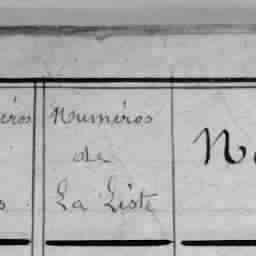 éros
Numéros
de
La Liste
s
N